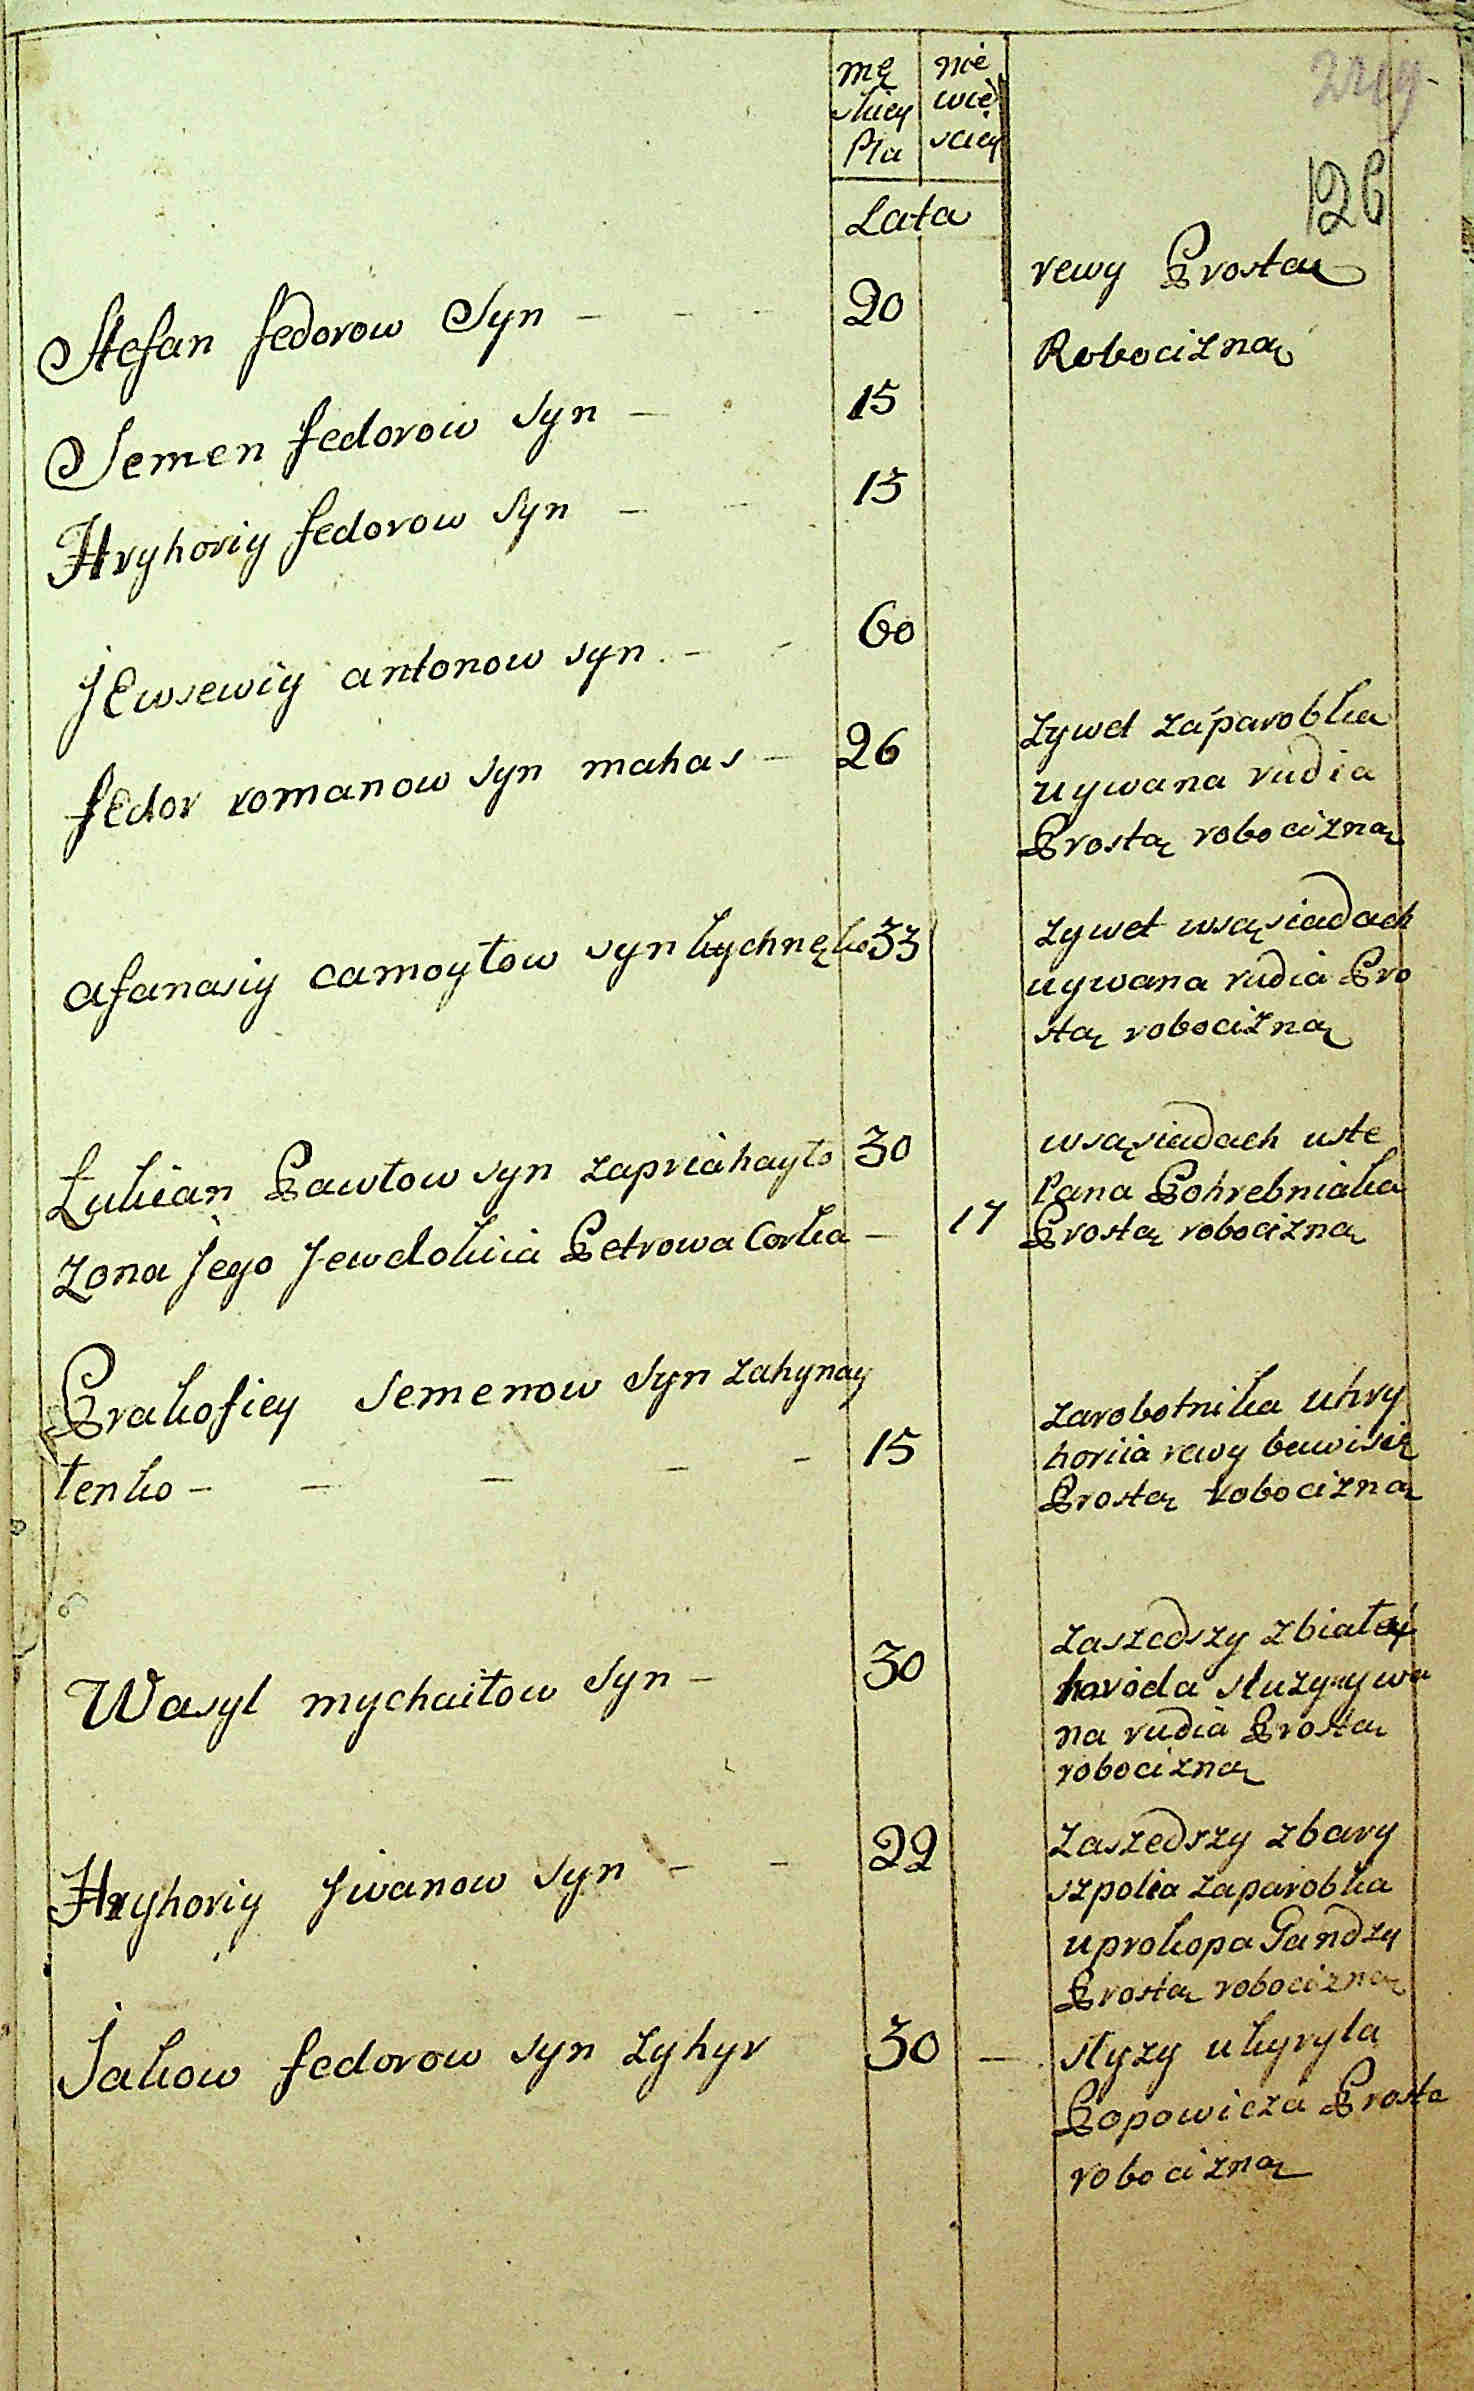 mę nie
skiey wie
Pła sciey
Lata
126
rewy Prostą
Stefan fedorow Syn - - - 20
Robocizną
Semen fedorow syn - 15
Hryhoriy fedorow syn - - 15
Jewsewiy antonow syn - - 60
fedor romanow syn mahas - 26
zywet zaparobka
uywana rudia
Prostą robocizną
afanasiy camoyłow syn kychnęko 33
zywet wsąsiadach
uywana rudia Pro
stą robocizną
Łukian Pawłow syn zapriahayło 30
wsąsiadach uste
pana Pohrebniaka
żona Jego Jewdokiia Petrowa Corka - 17
Prostą robocizną
Prakofiey Semenow syn zahynay
łenko - - - - - 15
zarobotnika uhry
horiia rewy bawisię
Prostą robocizną
Wasyl mychaiłow syn - 30
zaszedszy zbiałey
horoda służy uywa
na rudia Prostą
robocizną
Hryhoriy Jwanow syn - - 22
zaszedszy zbary
szpolia zaparobka
uprokopa Gandzy
Prostą robocizną
Jakow fedorow syn zyhyr 30 -
słyzy ukyryla
Popowicza Prosta
robocizną